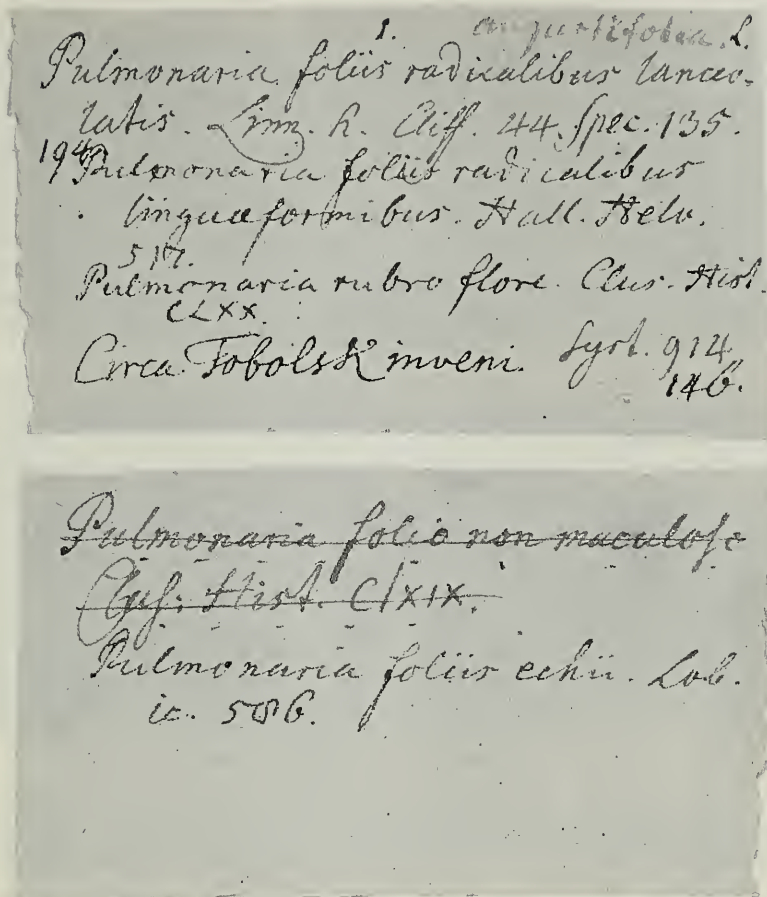 1. angustifolia. L.
Pulmonaria foliis radicalibus lanceo-
latis. Linn. h. Cliff. 44. Spec. 135.
194 Pulmonaria foliis radicalibus
linguæformibus. Hall. Helv.
517.
Pulmonaria rubro flore. Clus. Hist.
CLXX.
Circa Tobolsk inveni. Syst. 914
146.
Pulmonaria folio non maculoso
Clus. Hist. ClXIX.
Pulmonaria foliis echii. Lob.
ic. 586.